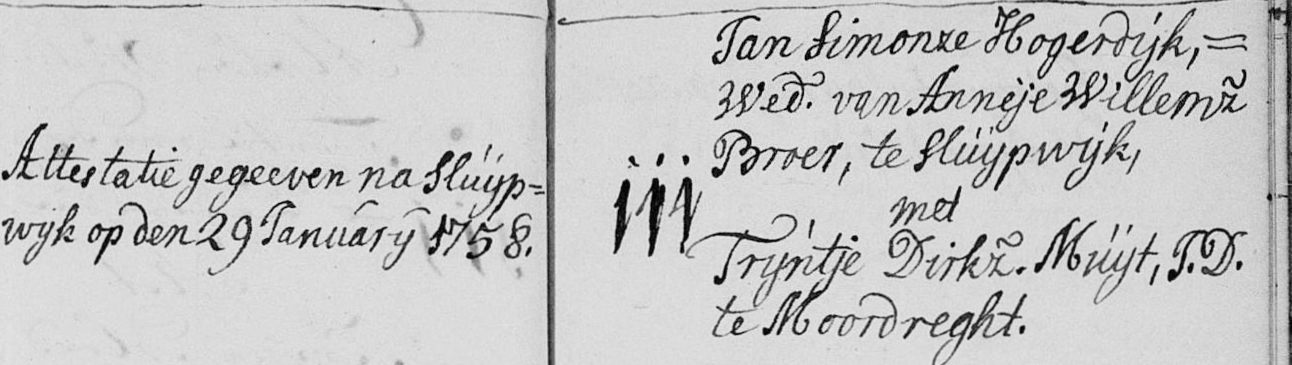 Attestatie gegeeven na Sluijp=
wijk op den 29 Januarij 1758.
iij
Jan Simonze Hogerdijk, =
Wed. van Annéje Willemz
Broer, te Sluijpwijk,
met
Trijntje Dirkz. Muijt, J. D.
te Moordreght.